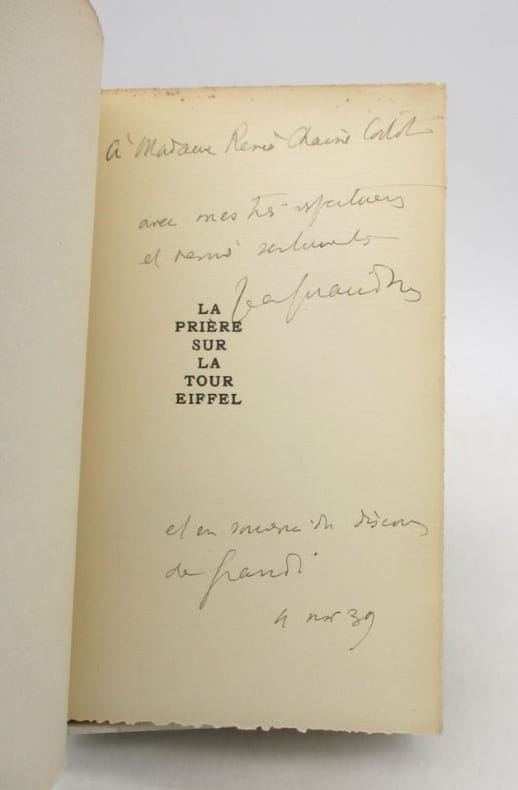 à Madame René Chaine Cortot
avec mes très respectueux
et sentiments
Jean Giraudoux
LA
PRIÈRE
SUR
LA
TOUR
EIFFEL
et en souvenir du discours
de Grandi
4 nov 39